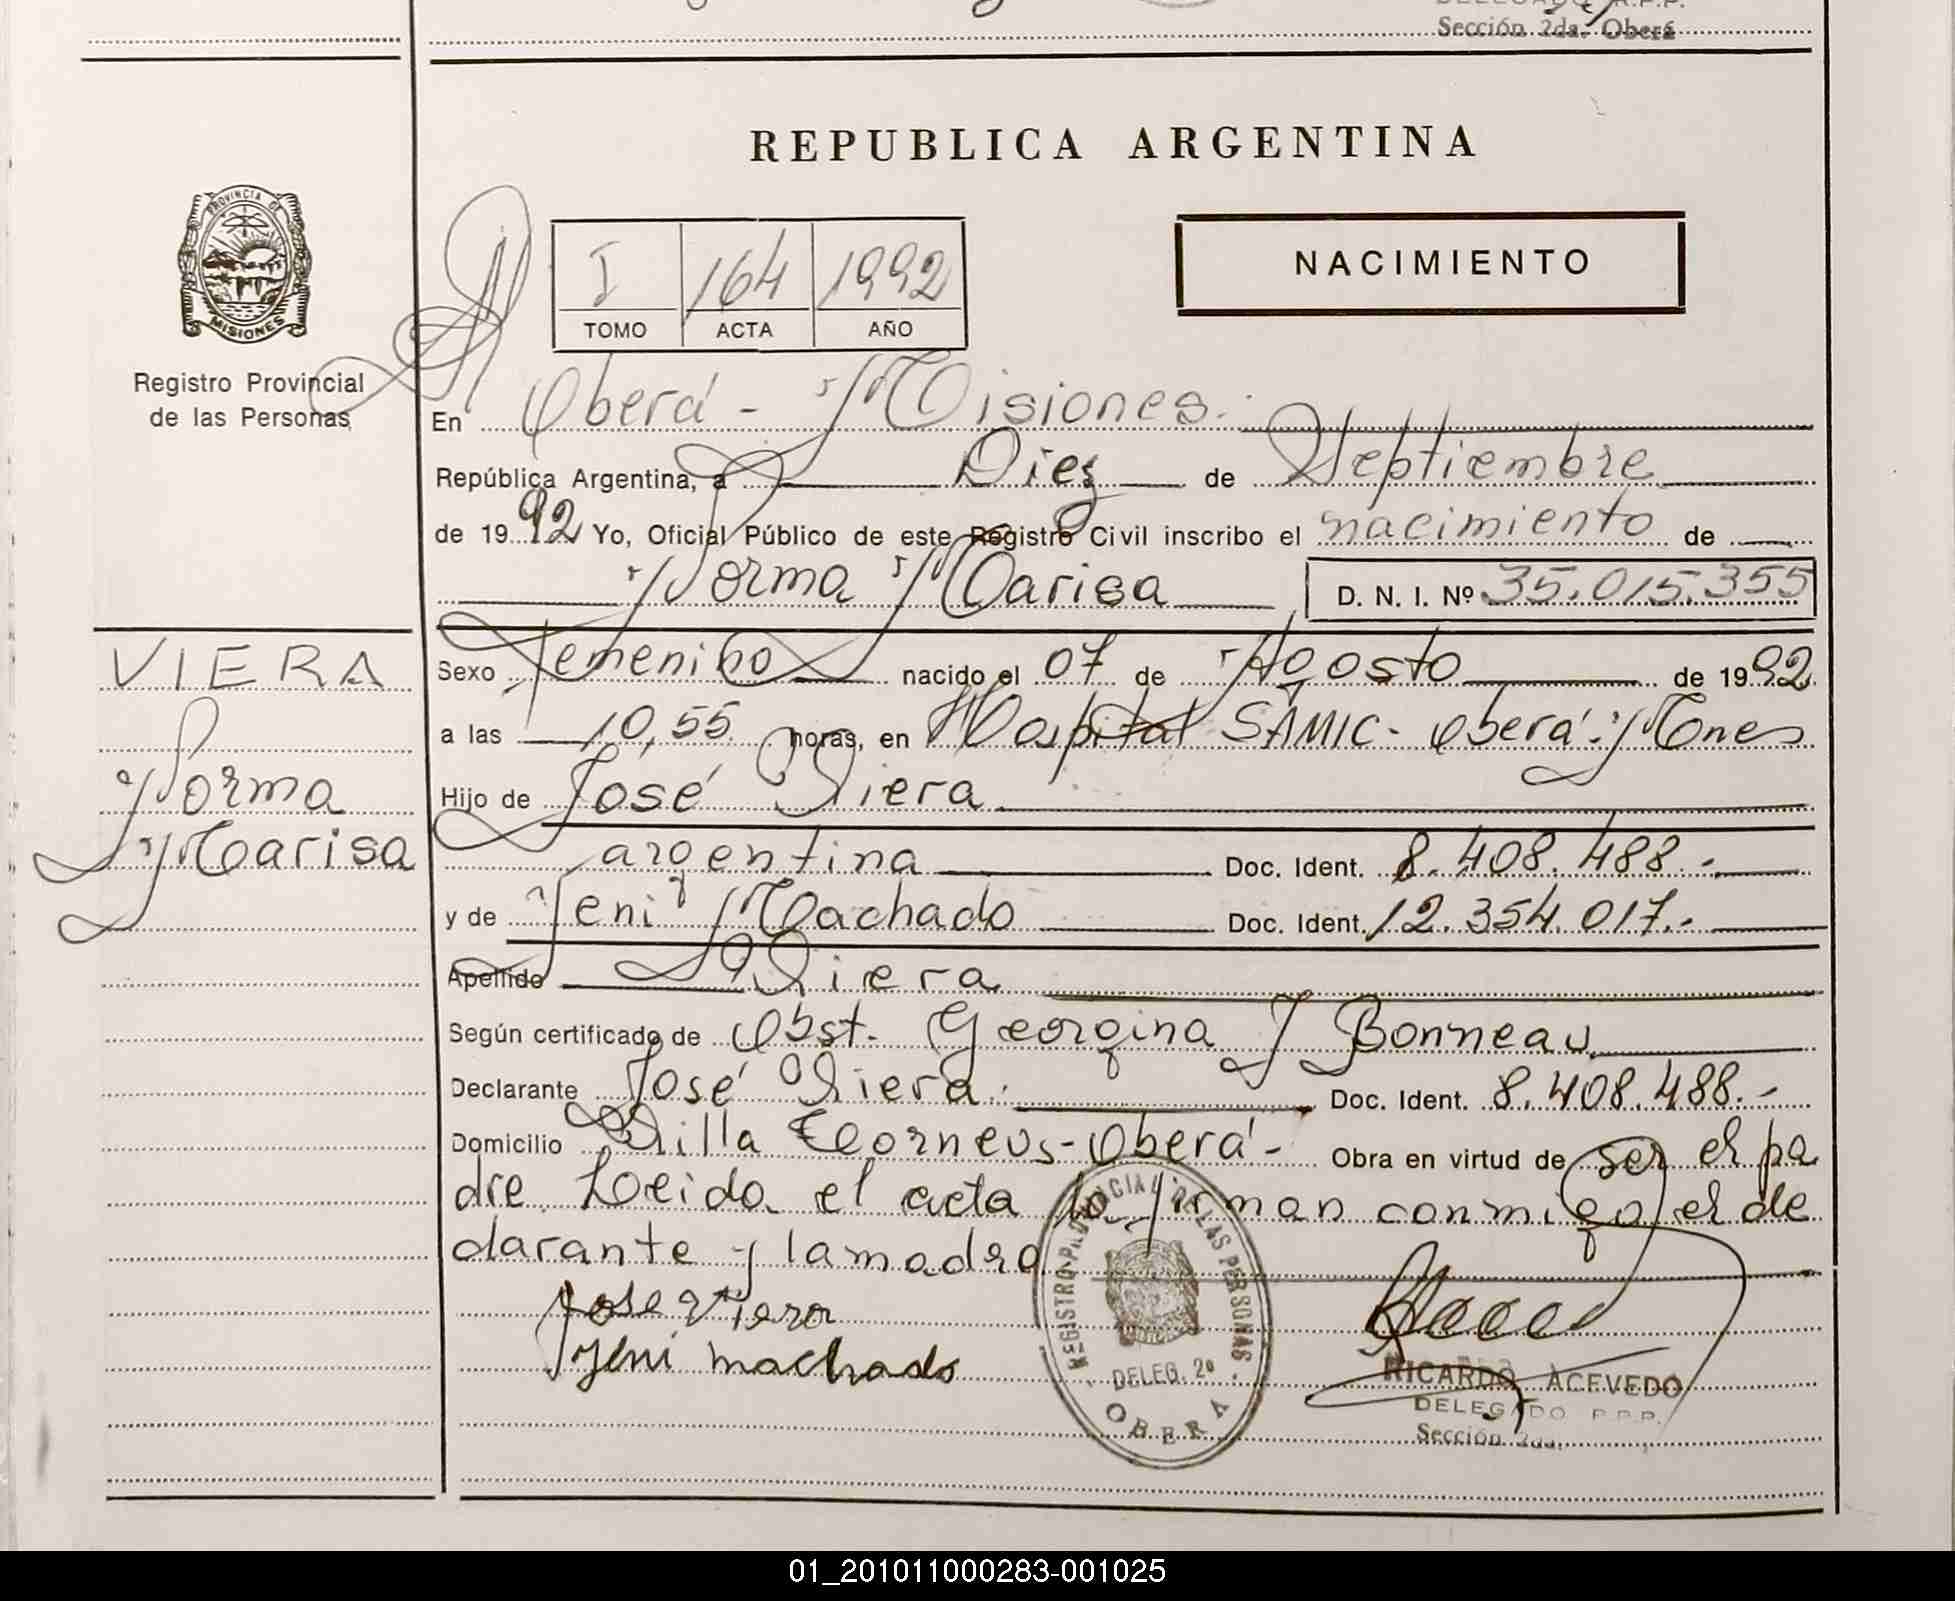 Sección 2da. Oberá
REPUBLICA ARGENTINA
PROVINCIA DE
MISIONES
Registro Provincial
de las Personas
I 164 1992
TOMO ACTA AÑO
NACIMIENTO
En Oberá - Misiones.
República Argentina, a Diez de Septiembre
de 1992 Yo, Oficial Público de este Registro Civil inscribo el nacimiento de
Norma Marisa D. N. I. Nº 35.015.355
VIERA
Norma
Marisa
Sexo femenino nacido el 07 de Agosto de 1992
a las 10,55 horas, en Hospital SAMIC - Oberá - Mnes
Hijo de José Viera
argentina Doc. Ident. 8.408.488.-
y de Yeni Machado Doc. Ident. 12.354.017.-
Apellido Viera
Según certificado de Obst. Georgina J Bonneau
Declarante José Viera. Doc. Ident. 8.408.488.-
Domicilio Villa Corneus - Oberá - Obra en virtud de ser el pa
dre. Leida el acta la firman conmigo el de
clarante y la madre
Jose Viera
Yeni machado
REGISTRO PROVINCIAL DE LAS PERSONAS
DELEG. 2º
OBERA
RICARDO ACEVEDO
DELEGADO R.P.P.
Sección 2da.
01_201011000283-001025